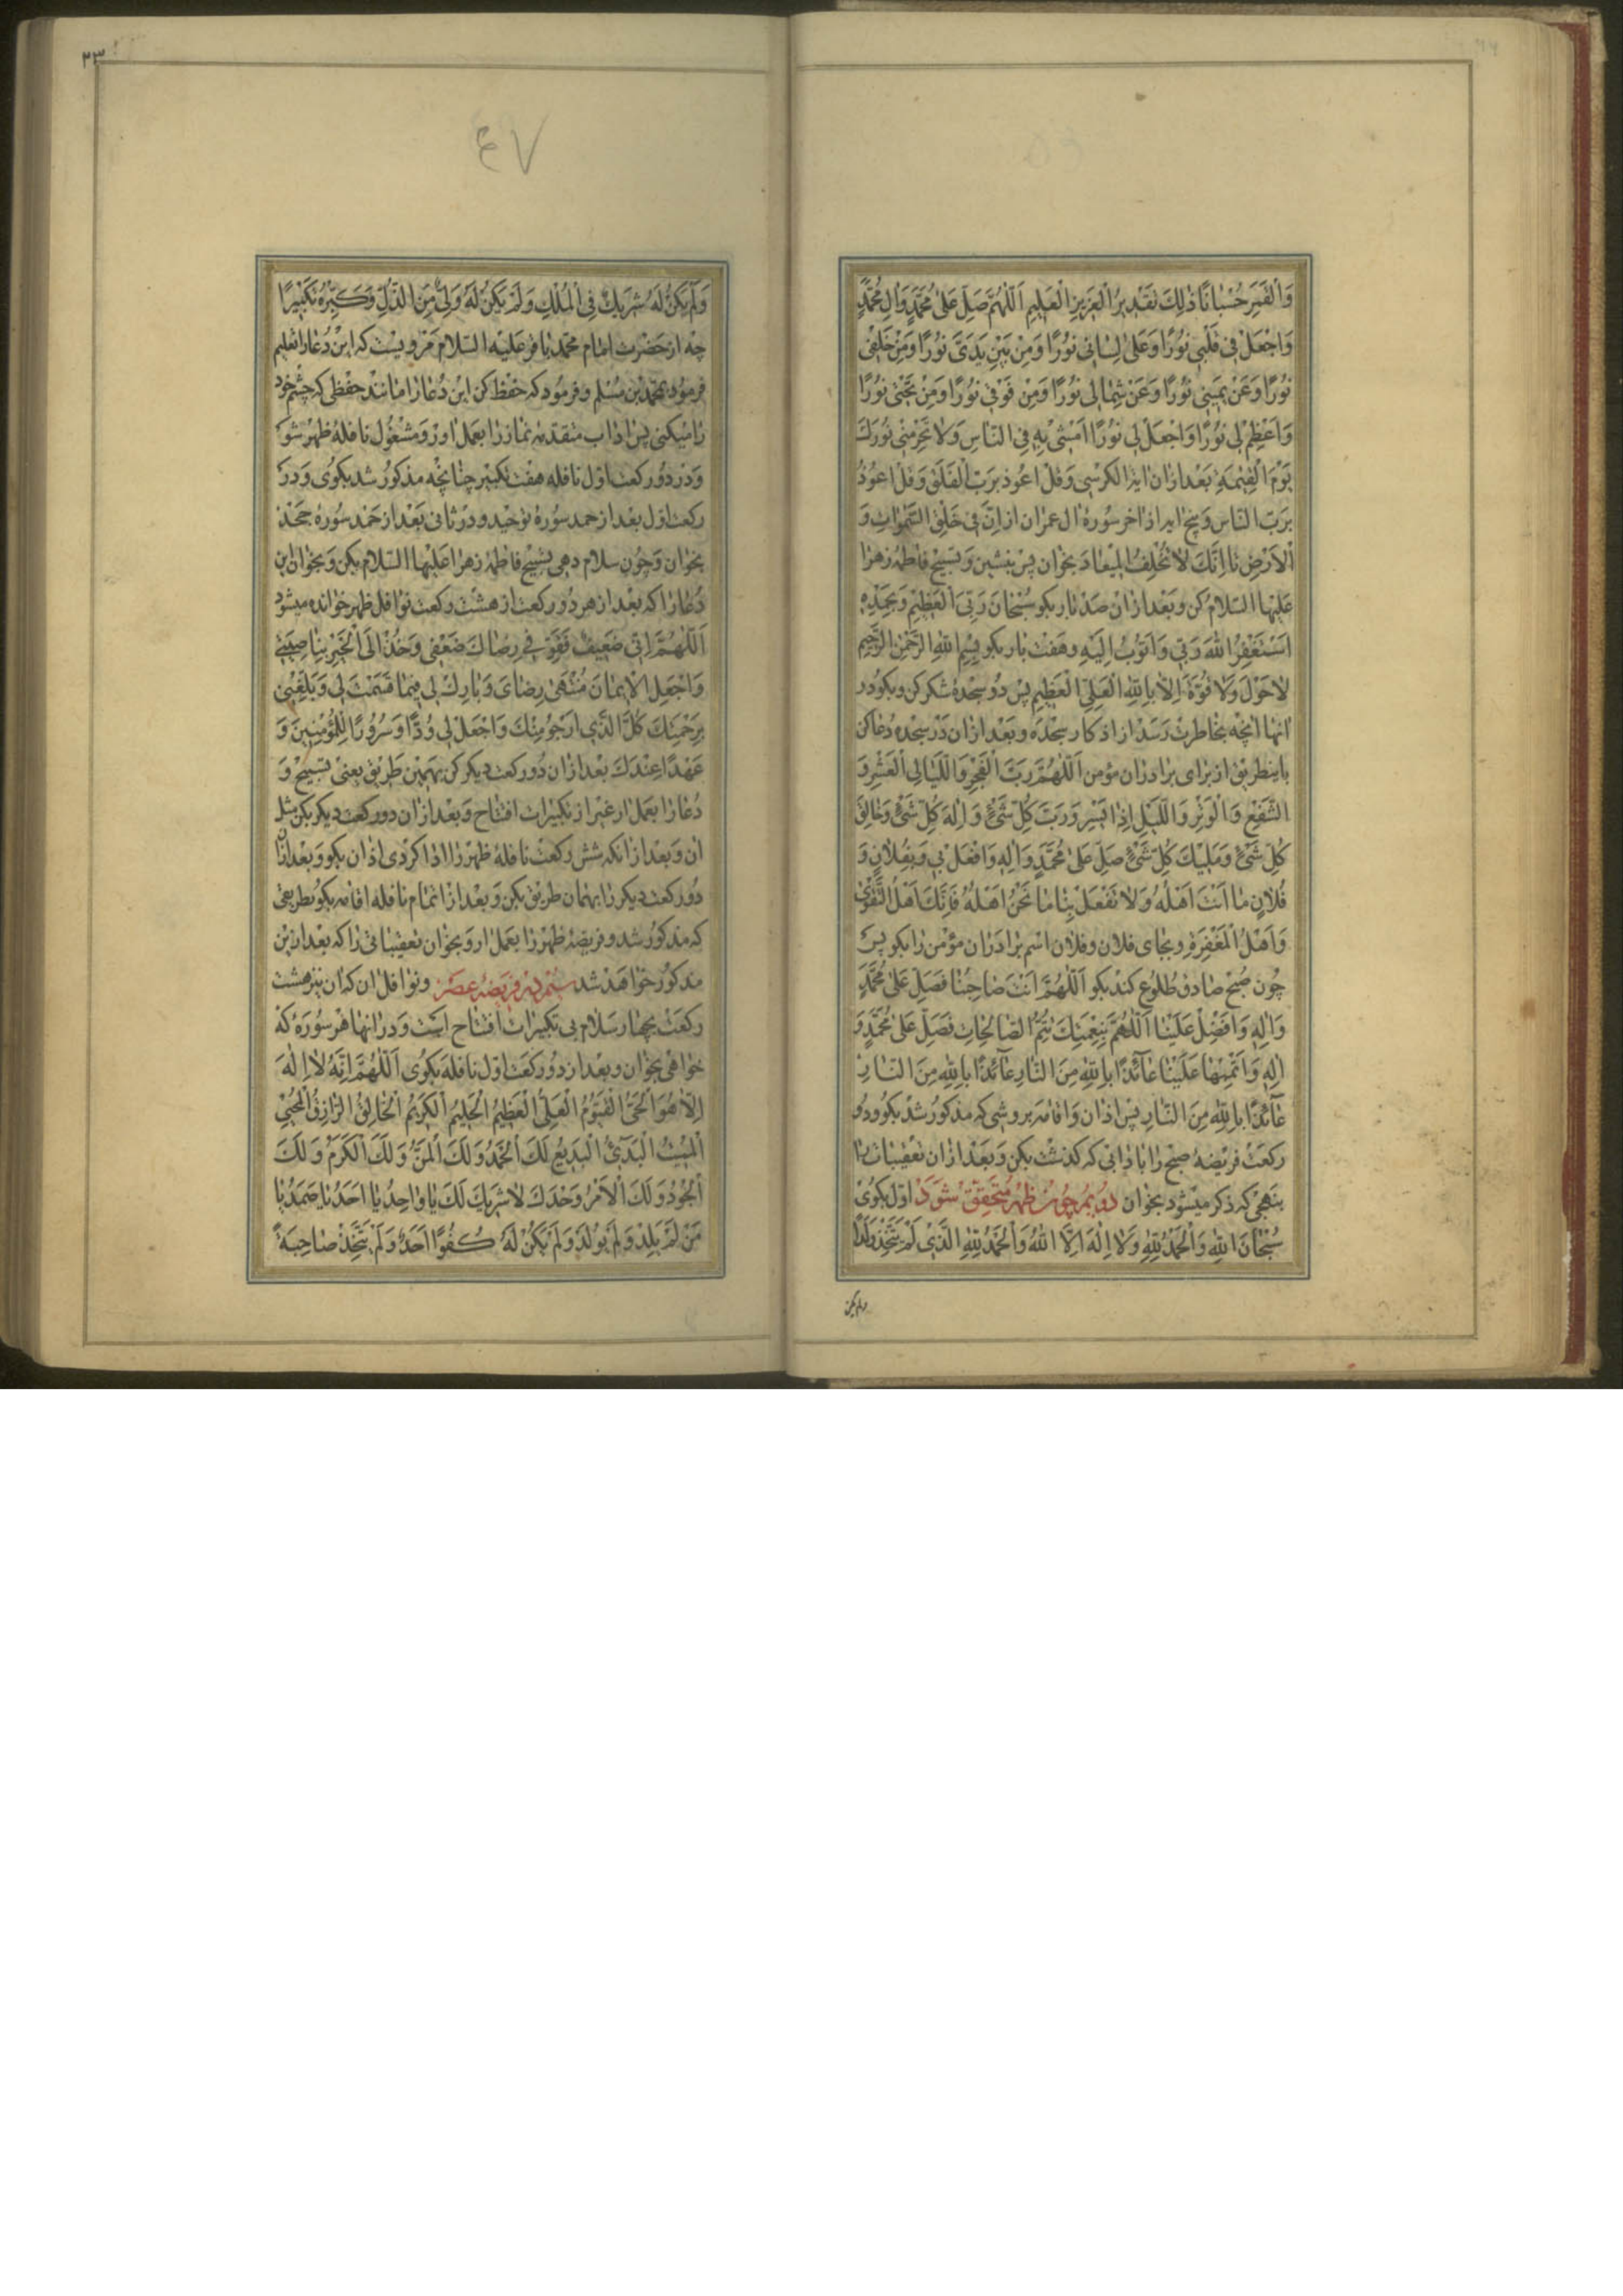 وَالْقَمَرَ حُسْبَانًا ذٰلِكَ تَقْدِيرُ الْعَزِيزِ الْعَلِيمِ اَللّٰهُمَّ صَلِّ عَلٰى مُحَمَّدٍ وَاٰلِ مُحَمَّدٍ
وَاجْعَلْ فِي قَلْبِي نُورًا وَعَلٰى لِسَانِي نُورًا وَمِنْ بَيْنِ يَدَيَّ نُورًا وَمِنْ خَلْفِي
نُورًا وَعَنْ يَمِينِي نُورًا وَعَنْ شِمَالِي نُورًا وَمِنْ فَوْقِي نُورًا وَمِنْ تَحْتِي نُورًا
وَاَعْظِمْ لِي نُورًا وَاجْعَلْ لِي نُورًا اَمْشِي بِهِ فِي النَّاسِ وَلَا تَحْرِمْنِي نُورَكَ
يَوْمَ الْقِيٰمَةِ بعد ازان اية الكرسى وَقُلْ اَعُوذُ بِرَبِّ الْفَلَقِ وَقُلْ اَعُوذُ
بِرَبِّ النَّاسِ وپنج ايه از اخر سورهٔ ال عمران از اِنَّ فِي خَلْقِ السَّمٰوَاتِ وَ
الْاَرْضِ تا اِنَّكَ لَا تُخْلِفُ الْمِيعَادَ بخوان پس بنشين و تسبيح فاطمهٔ زهرا
عليها السلام كن وبعد ازان صد بار بكو سُبْحَانَ رَبِّيَ الْعَظِيمِ وَبِحَمْدِهِ
اَسْتَغْفِرُ اللّٰهَ رَبِّي وَاَتُوبُ اِلَيْهِ وهفت بار بكو بِسْمِ اللّٰهِ الرَّحْمٰنِ الرَّحِيمِ
لَا حَوْلَ وَلَا قُوَّةَ اِلَّا بِاللّٰهِ الْعَلِيِّ الْعَظِيمِ پس دو سجدهٔ شكر كن وبكو در
انها انچه بخاطرت رسد از اذكار سجده وبعد ازان در سجده دعا كن
باينطريق از براى برادران مؤمن اَللّٰهُمَّ رَبَّ الْفَجْرِ وَاللَّيَالِي الْعَشْرِ وَ
الشَّفْعِ وَالْوَتْرِ وَاللَّيْلِ اِذَا يَسْرِ وَرَبَّ كُلِّ شَيْءٍ وَاِلٰهَ كُلِّ شَيْءٍ وَخَالِقَ
كُلِّ شَيْءٍ وَمَلِيكَ كُلِّ شَيْءٍ صَلِّ عَلٰى مُحَمَّدٍ وَاٰلِهِ وَافْعَلْ بِي وَبِفُلَانٍ وَ
فُلَانٍ مَا اَنْتَ اَهْلُهُ وَلَا تَفْعَلْ بِنَا مَا نَحْنُ اَهْلُهُ فَاِنَّكَ اَهْلُ التَّقْوٰى
وَاَهْلُ الْمَغْفِرَةِ وبجاى فلان وفلان اسم برادران مؤمن را بكو پس
چون صبح صادق طلوع كند بكو اَللّٰهُمَّ اَنْتَ صَاحِبُنَا فَصَلِّ عَلٰى مُحَمَّدٍ
وَاٰلِهِ وَاَفْضِلْ عَلَيْنَا اَللّٰهُمَّ بِنِعْمَتِكَ تَتِمُّ الصَّالِحَاتِ فَصَلِّ عَلٰى مُحَمَّدٍ وَ
اٰلِهِ وَاَتْمِمْهَا عَلَيْنَا عَائِذًا بِاللّٰهِ مِنَ النَّارِ عَائِذًا بِاللّٰهِ مِنَ النَّارِ
عَائِذًا بِاللّٰهِ مِنَ النَّارِ پس اذان واقامه بروشى كه مذكور شد بكو ودو
ركعت فريضهٔ صبح را بادابى كه كذشت بكن وبعد ازان تعقيبات را
بنهجى كه ذكر ميشود بخوان دويم چون ظهر متحقق شود اول بكوى
سُبْحَانَ اللّٰهِ وَالْحَمْدُ لِلّٰهِ وَلَا اِلٰهَ اِلَّا اللّٰهُ وَالْحَمْدُ لِلّٰهِ الَّذِي لَمْ يَتَّخِذْ وَلَدًا
ولم يكن
٢٣
٤٧
وَلَمْ يَكُنْ لَهُ شَرِيكٌ فِي الْمُلْكِ وَلَمْ يَكُنْ لَهُ وَلِيٌّ مِنَ الذُّلِّ وَكَبِّرْهُ تَكْبِيرًا
چه از حضرت امام محمد باقر عليه السلام مرويست كه اين دعا را تعليم
فرمود بمحمد بن مسلم وفرمود كه حفظ كن اين دعا را مانند حفظى كه چشم خود
را ميكنى پس اداب متقدمه نماز را بعمل اور ومشغول نافلهٔ ظهر شو
ودر دو ركعت اول نافله هفت تكبير چنانچه مذكور شد بكوى ودر
ركعت اول بعد از حمد سورهٔ توحيد ودر ثانى بعد از حمد سورهٔ جحد
بخوان وچون سلام دهى تسبيح فاطمهٔ زهرا عليها السلام بكن وبخوان اين
دعا را كه بعد از هر دو ركعت از هشت ركعت نوافل ظهر خوانده ميشود
اَللّٰهُمَّ اِنِّي ضَعِيفٌ فَقَوِّ فِي رِضَاكَ ضَعْفِي وَخُذْ اِلَى الْخَيْرِ بِنَاصِيَتِي
وَاجْعَلِ الْاِيمَانَ مُنْتَهٰى رِضَايَ وَبَارِكْ لِي فِيمَا قَسَمْتَ لِي وَبَلِّغْنِي
بِرَحْمَتِكَ كُلَّ الَّذِي اَرْجُو مِنْكَ وَاجْعَلْ لِي وُدًّا وَسُرُورًا لِلْمُؤْمِنِينَ وَ
عَهْدًا عِنْدَكَ بعد ازان دو ركعت ديكر كن بهمين طريق يعنى تسبيح و
دعا را بعمل ار غير از تكبيرات افتتاح وبعد ازان دو ركعت ديكر بكن مثل
ان وبعد ازانكه شش ركعت نافلهٔ ظهر را ادا كردى اذان بكو وبعد ازان
دو ركعت ديكر را بهمان طريق بكن وبعد از اتمام نافله اقامه بكو بطريقى
كه مذكور شد وفريضهٔ ظهر را بعمل ار وبخوان تعقيباتى را كه بعد ازين
مذكور خواهد شد سيم در فريضهٔ عصر ونوافل ان كه ان نيز هشت
ركعت بچهار سلام بى تكبيرات افتتاح است ودر انها هر سورهٔ كه
خواهى بخوان وبعد از دو ركعت اول نافله بكوى اَللّٰهُمَّ اِنَّهُ لَا اِلٰهَ
اِلَّا هُوَ الْحَيُّ الْقَيُّومُ الْعَلِيُّ الْعَظِيمُ الْحَلِيمُ الْكَرِيمُ الْخَالِقُ الرَّازِقُ الْمُحْيِي
الْمُمِيتُ الْبَدِيءُ الْبَدِيعُ لَكَ الْحَمْدُ وَلَكَ الْمَنُّ وَلَكَ الْكَرَمُ وَلَكَ
الْجُودُ وَلَكَ الْاَمْرُ وَحْدَكَ لَا شَرِيكَ لَكَ يَا وَاحِدُ يَا اَحَدُ يَا صَمَدُ يَا
مَنْ لَمْ يَلِدْ وَلَمْ يُولَدْ وَلَمْ يَكُنْ لَهُ كُفُوًا اَحَدٌ وَلَمْ يَتَّخِذْ صَاحِبَةً